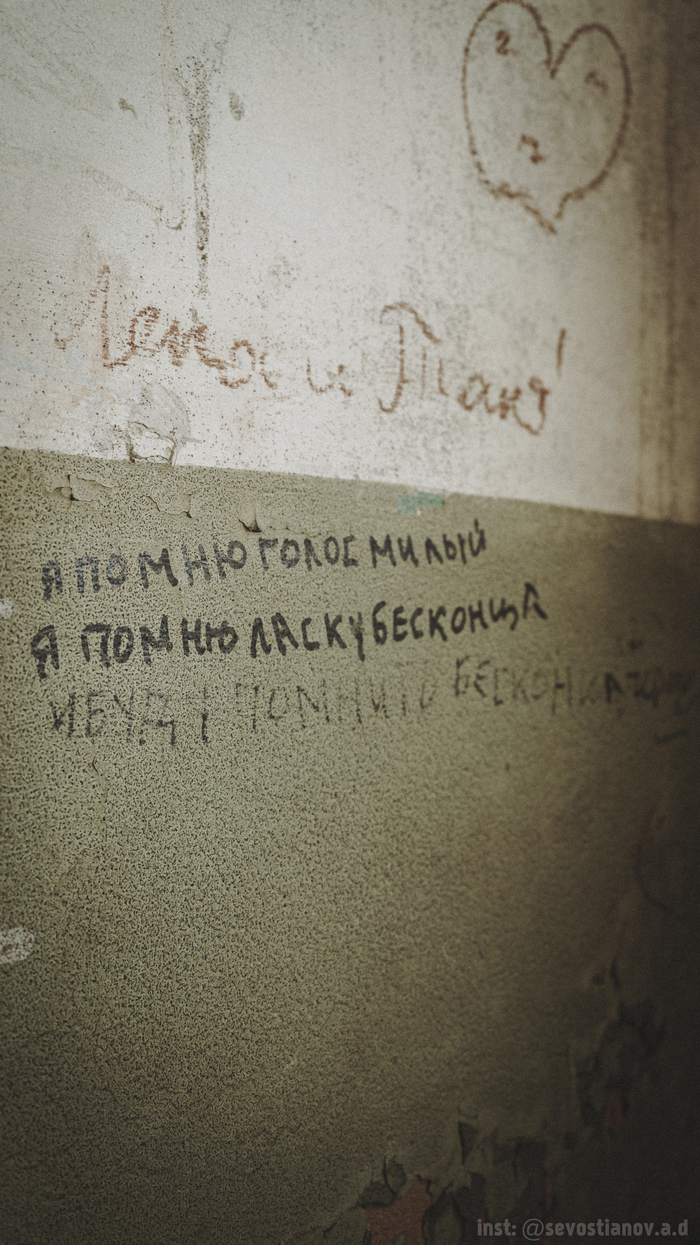 2.
Лёнчик и Таня!
Я ПОМНЮ ГОЛОС МИЛЫЙ
Я ПОМНЮ ЛАСКУ БЕСКОНЦА
И БУДУ ПОМНИТЬ БЕСКОН
inst: @sevostianov.a.d